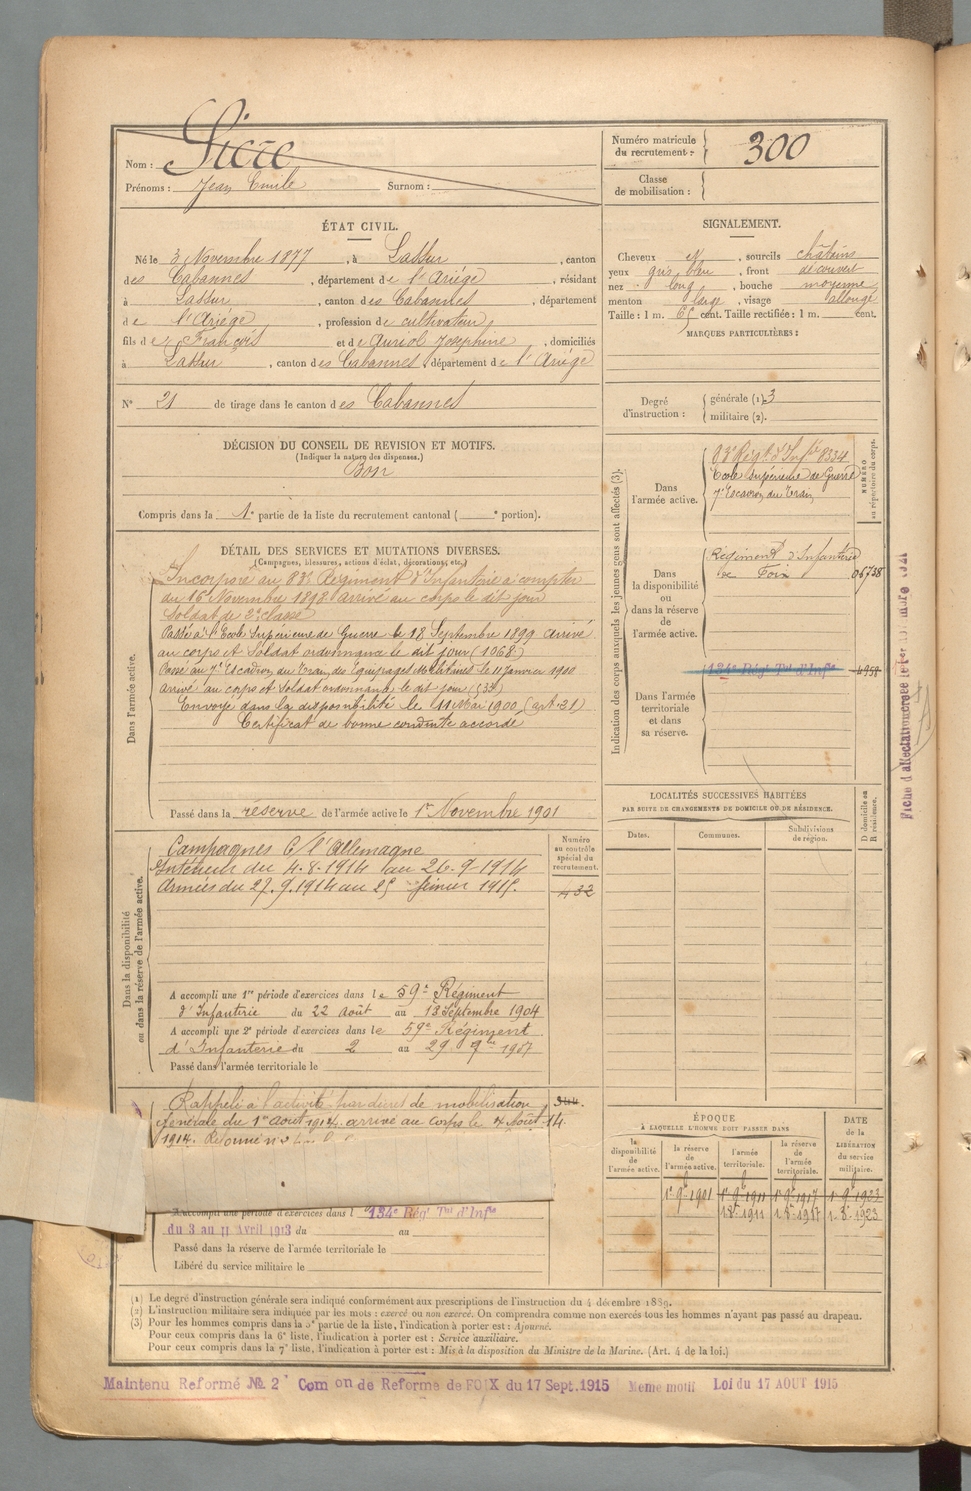 Nom : Sicre
Prénoms : Jean Emile Surnom :
Numéro matricule
du recrutement : 300
Classe
de mobilisation :
ÉTAT CIVIL.
Né le 3 Novembre 1877, à Lassur, canton
des Cabannes, département de l'Ariége, résidant
à Lassur, canton des Cabannes, département
de l'Ariége, profession de cultivateur,
fils de François et de Auriol Joséphine, domiciliés
à Lassur, canton des Cabannes, département de l'Ariége
N° 21 de tirage dans le canton des Cabannes
SIGNALEMENT.
Cheveux et, sourcils châtains
yeux gris bleu, front découvert
nez long, bouche moyenne
menton large, visage allongé
Taille : 1 m. 65 cent. Taille rectifiée : 1 m. cent.
MARQUES PARTICULIÈRES :
Degré
d'instruction :
générale (1). 3
militaire (2).
DÉCISION DU CONSEIL DE REVISION ET MOTIFS.
(Indiquer la nature des dispenses.)
Bon
Compris dans la 1e partie de la liste du recrutement cantonal ( e portion).
DÉTAIL DES SERVICES ET MUTATIONS DIVERSES.
(Campagnes, blessures, actions d'éclat, décorations, etc.)
Dans l'armée active.
Incorporé au 83e Régiment d'Infanterie à compter
du 16 Novembre 1898 arrivé au corps le dit jour
Soldat de 2e classe
Passé à l'Ecole Supérieure de Guerre le 18 Septembre 1899 arrivé
au corps et Soldat ordonnance le dit jour (1068)
Passé au 7e Escadron du Train des Equipages Militaires le 11 Janvier 1900
arrivé au corps et Soldat ordonnance le dit jour
Envoyé dans la disponibilité le 11 Mai 1900, (art. 21)
Certificat de bonne conduite accordé
Passé dans la réserve de l'armée active le 1er Novembre 1901
Dans la disponibilité
ou dans la réserve de l'armée active.
Campagnes C/ l'Allemagne
Intérieur du 4.8.1914 au 26.9.1914
Armées du 27.9.1914 au 25 février 1915.
Numéro
au contrôle
spécial du
recrutement.
432
A accompli une 1re période d'exercices dans le 59e Régiment
d'Infanterie du 22 août au 18 Septembre 1904
A accompli une 2e période d'exercices dans le 59e Régiment
d'Infanterie du 2 au 29 9bre 1907
Passé dans l'armée territoriale le
Rappelé à l'activité par décret de mobilisation
générale du 1er août 1914. arrivé au corps le 4 Août 14
1914. Réformé n° 2
A accompli une période d'exercices dans l 134e Régt Tal d'Infie
du 3 au 11 Avril 1913 du au
Passé dans la réserve de l'armée territoriale le
Libéré du service militaire le
Indication des corps auxquels les jeunes gens sont affectés (3).
NUMÉRO
au répertoire du corps.
Dans
l'armée active.
83e Régt d'Infie 8334
Ecole Supérieure de Guerre
7e Escadron du Train
Dans
la disponibilité
ou
dans la réserve
de
l'armée active.
Régiment d'Infanterie
de Foix 06738
Dans l'armée
territoriale
et dans
sa réserve.
134e Régt Tal d'Infie 4958
Fiche d'affectation
LOCALITÉS SUCCESSIVES HABITÉES
PAR SUITE DE CHANGEMENTS DE DOMICILE OU DE RÉSIDENCE.
Dates.
Communes.
Subdivisions
de région.
D domicile ou
R résidence.
ÉPOQUE
À LAQUELLE L'HOMME DOIT PASSER DANS
DATE
de la
LIBÉRATION
du service
militaire.
la
disponibilité
de
l'armée active.
la réserve
de
l'armée active.
l'armée
territoriale.
la réserve
de
l'armée
territoriale.
1er 9b 1901 1er 9b 1911 1er 9b 1917 1er 9b 1923
1.8.1911 1.8.1917 1.8.1923
(1) Le degré d'instruction générale sera indiqué conformément aux prescriptions de l'instruction du 4 décembre 1889.
(2) L'instruction militaire sera indiquée par les mots : exercé ou non exercé. On comprendra comme non exercés tous les hommes n'ayant pas passé au drapeau.
(3) Pour les hommes compris dans la 5e partie de la liste, l'indication à porter est : Ajourné.
Pour ceux compris dans la 6e liste, l'indication à porter est : Service auxiliaire.
Pour ceux compris dans la 7e liste, l'indication à porter est : Mis à la disposition du Ministre de la Marine. (Art. 4 de la loi.)
Maintenu Reformé No. 2 Comon de Reforme de FOIX du 17 Sept. 1915 Meme motif Loi du 17 AOUT 1915